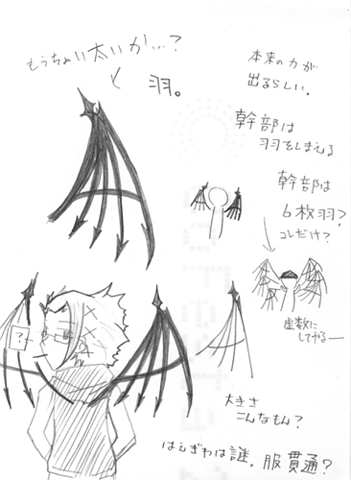 もうちょい太いか…?
羽。
本来の力が
出るらしい。
幹部は
羽をしまえる
幹部は
6枚羽?
コレだけ?
虚数に
してやるー
?
大きさ
こんなもん?
はえぎわは謎。服貫通?